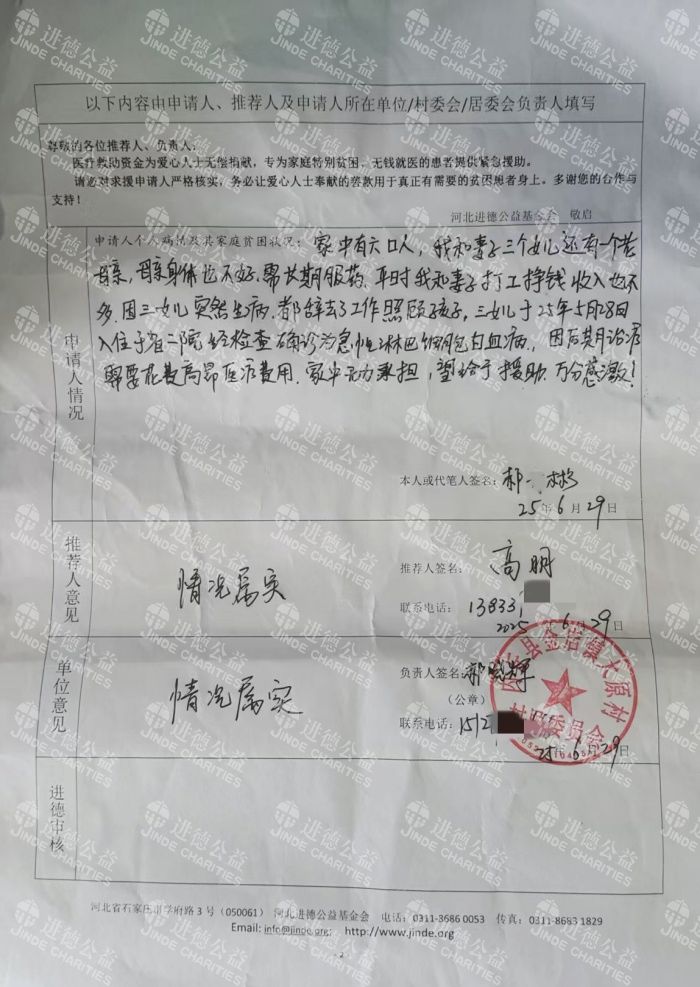 以下内容由申请人、推荐人及申请人所在单位/村委会/居委会负责人填写
尊敬的各位推荐人、负责人：
医疗救助资金为爱心人士无偿捐献，专为家庭特别贫困、无钱就医的患者提供紧急援助。
请您对求援申请人严格核实，务必让爱心人士奉献的善款用于真正有需要的贫困患者身上。多谢您的合作与
支持！
河北进德公益基金会 敬启
申请人情况
申请人个人病情及其家庭贫困状况：家中有六口人，我和妻子三个女儿还有一个老
母亲，母亲身体也不好，需长期服药，平时我和妻子打工挣钱收入也不
多，因三女儿突然生病，都辞去了工作照顾孩子，三女儿于25年5月28日
入住于省二院经检查确诊为急性淋巴细胞白血病，因后期治疗
需要花费高昂医疗费用，家中无力承担，望给于援助，万分感激！
本人或代笔人签名：郝 彬
25年6月29日
推荐人意见
情况属实
推荐人签名：高明
联系电话：13833
2025年6月29日
单位意见
情况属实
负责人签名：郝 辉
（公章）
联系电话：1512
25年6月29日
县金店镇大原村
村民委员会
进德审核
河北省石家庄市学府路3号（050061） 河北进德公益基金会 电话：0311-3686 0053 传真：0311-8683 1829
Email: info@jinde.org; http://www.jinde.org
- 2 -
进德公益
JINDE CHARITIES